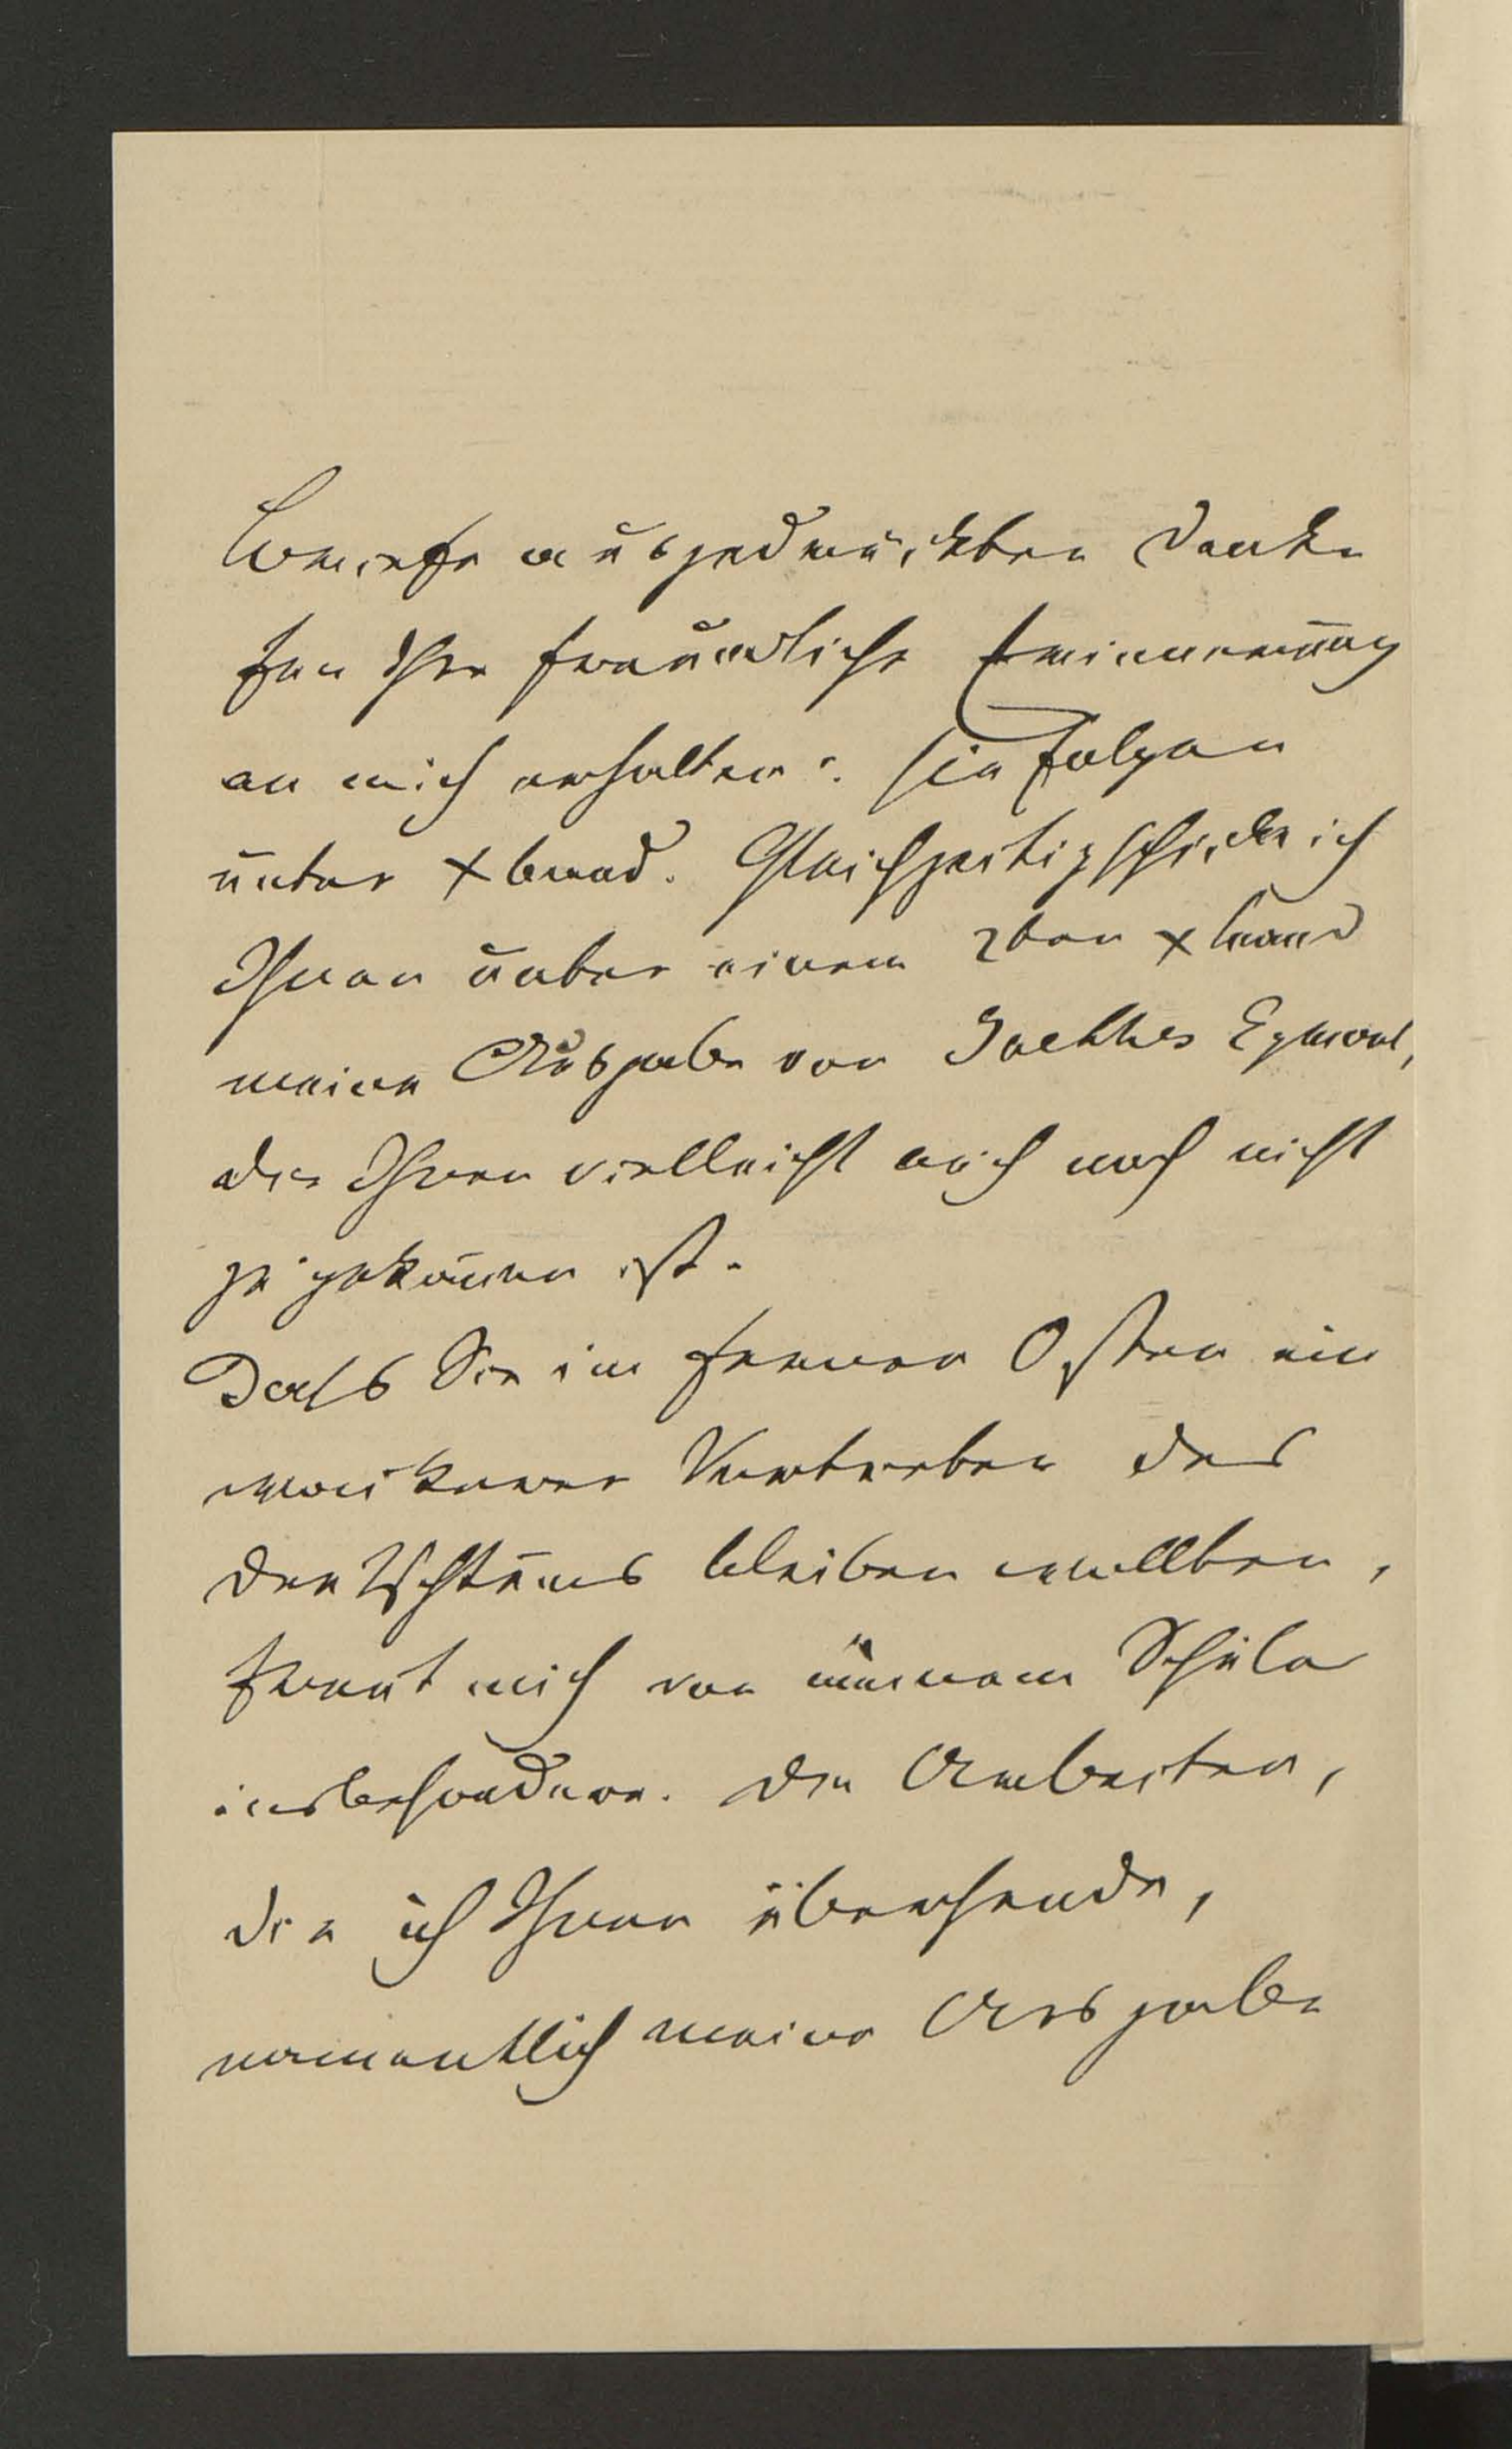 Briefe ausgedrückten Danke
für Ihre freundliche Erinnerung
an mich erhalten: sie folgen
unter xband. Gleichzeitig schicke ich
Ihnen unter einem 2ten xband
meine Ausgabe von Goethes Egmont,
die Ihnen vielleicht auch noch nicht
zugekom̄en ist.
Dass Sie im fernen Osten ein
wackerer Vertreter des
Deutschtums bleiben wollten,
freut mich von meinem Schüler
insbesondere. Die Arbeiten,
die ich Ihnen übersende,
namentlich meine Ausgabe